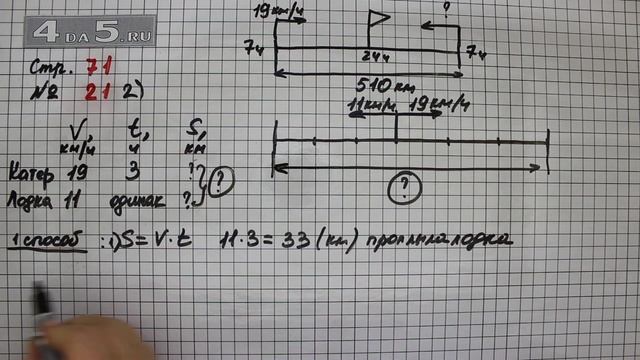 4DA5.RU
Стр. 71
№ 21 2)
19 км/ч ?
7ч 24ч 7ч
510 км
11 км/ч 19 км/ч
?
V, t, S,
км/ч ч км
Катер 19 3 ? ?
Лодка 11 одинак ?
1 способ: 1) S = V · t 11 · 3 = 33 (км) проплыла лодка